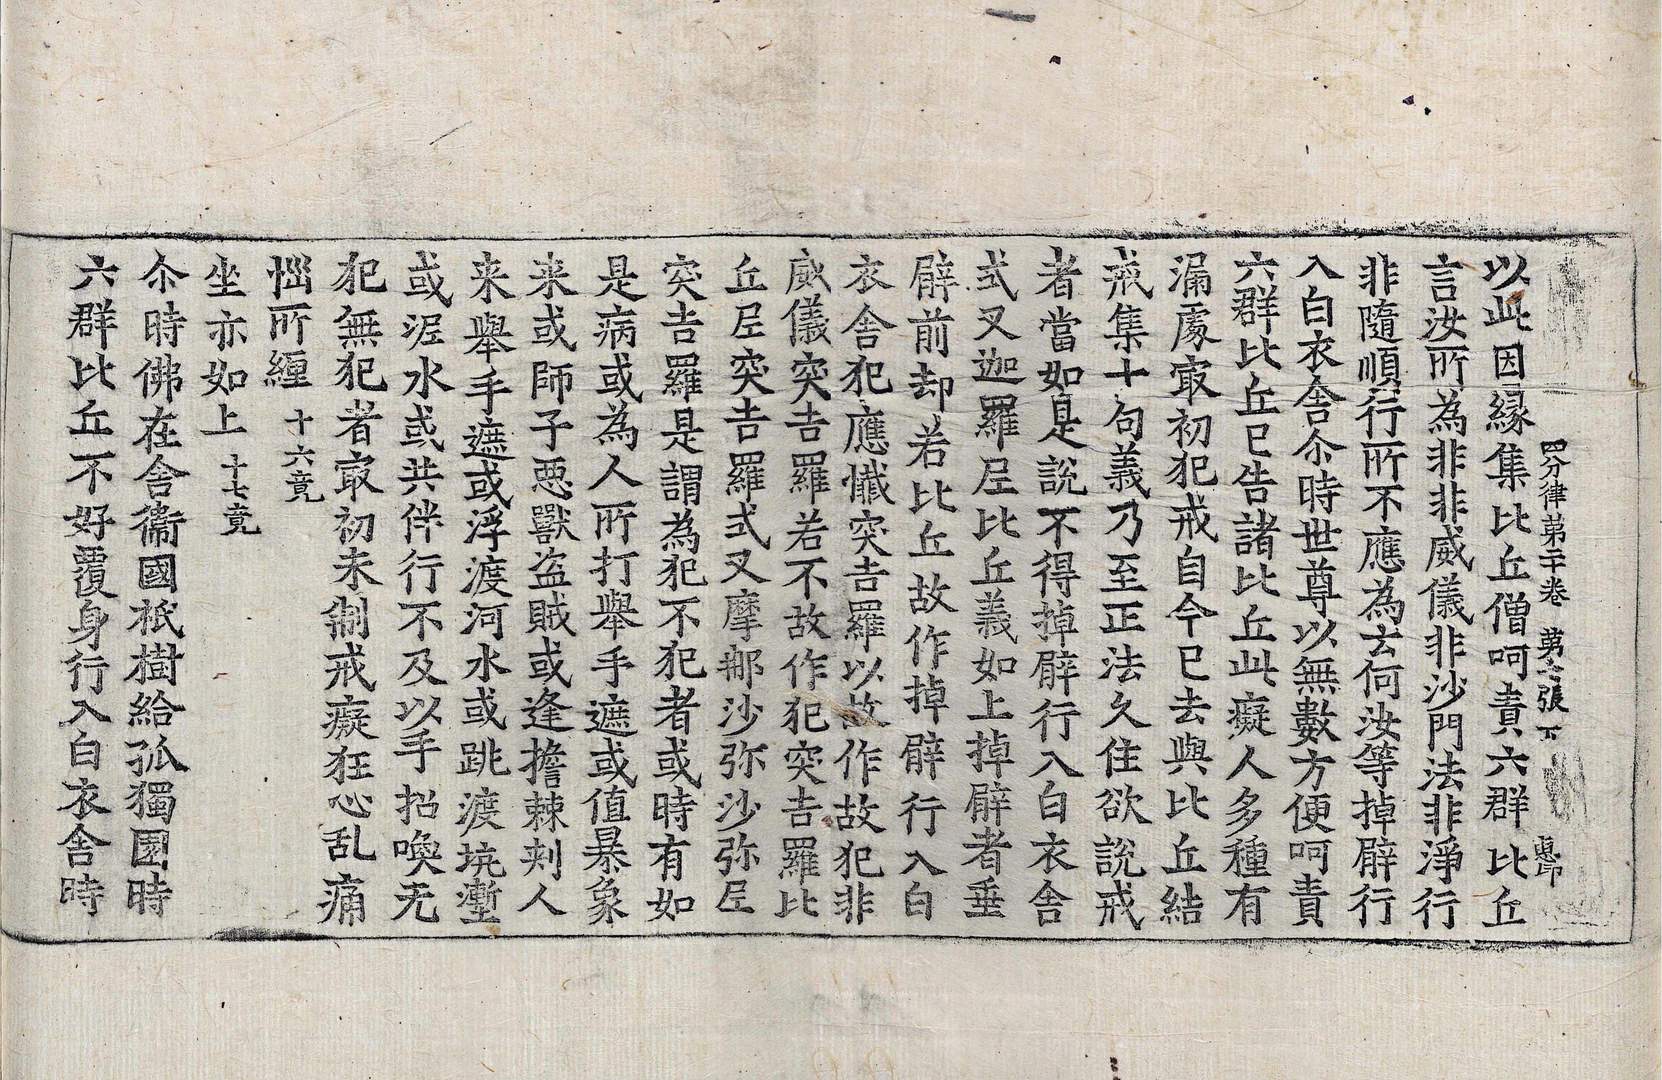 四分律第二十卷 第六張 下 惠印
以此因緣集比丘僧呵責六群比丘
言汝所為非非威儀非沙門法非淨行
非隨順行所不應為云何汝等掉臂行
入白衣舍尒時世尊以無數方便呵責
六群比丘已告諸比丘此癡人多種有
漏處㝡初犯戒自今已去與比丘結
戒集十句義乃至正法久住欲說戒
者當如是說不得掉臂行入白衣舍
式叉迦羅尼比丘義如上掉臂者垂
臂前却若比丘故作掉臂行入白
衣舍犯應懺突吉羅以故作故犯非
威儀突吉羅若不故作犯突吉羅比
丘尼突吉羅式叉摩那沙弥沙弥尼
突吉羅是謂為犯不犯者或時有如
是病或為人所打舉手遮或值暴象
来或師子惡獸盜賊或逢擔棘刾人
来舉手遮或浮渡河水或跳渡坑壍
或泥水或共伴行不及以手招喚无
犯無犯者㝡初未制戒癡狂心乱痛
惱所纏 十六竟
坐亦如上 十七竟
尒時佛在舍衞國祇樹給孤獨園時
六群比丘不好覆身行入白衣舍時